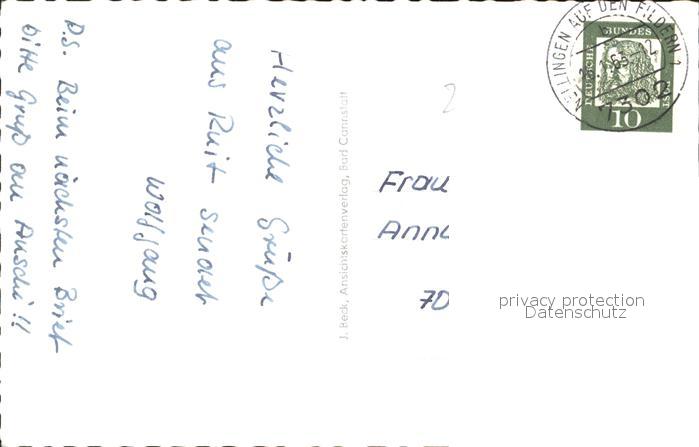 Herzliche Grüße
aus Ruit sendet
Wolfgang
P.S. Beim nächsten Brief
bitte Gruß an Anschi!!
J. Beck, Ansichtskartenverlag, Bad Cannstatt
2
Frau
Ann
70
privacy protection
Datenschutz
NELLINGEN AUF DEN FILDERN 1
7302
DEUTSCHE BUNDESPOST
10